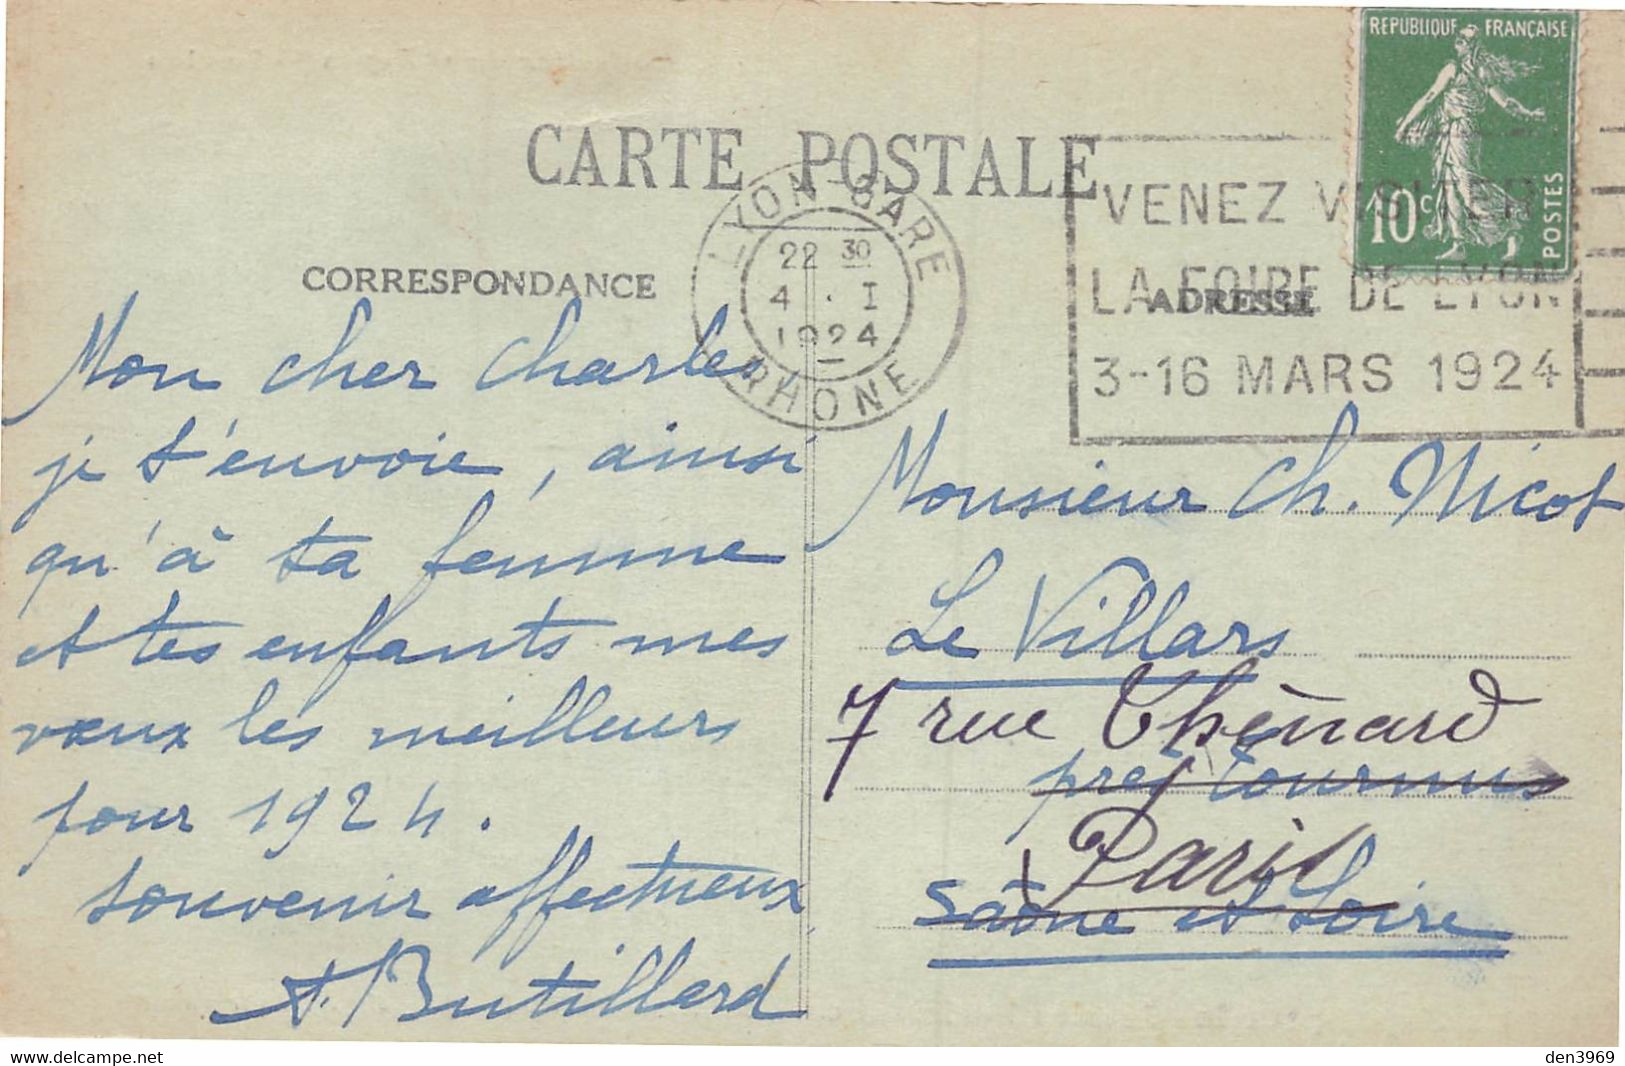 REPUBLIQUE FRANÇAISE
10c
POSTES
CARTE POSTALE
LYON-GARE
22 30
4 . I
1924
RHONE
VENEZ VISITER
LA FOIRE DE LYON
3-16 MARS 1924
CORRESPONDANCE
ADRESSE
Mon cher Charles
je t'envoie, ainsi
qu'à ta femme
et tes enfants mes
vœux les meilleurs
pour 1924.
souvenir affectueux
A. Butillard
Monsieur Ch. Nicot
Le Villars
7 rue Thénard
près Tournus
Paris
Saône et Loire
den3969